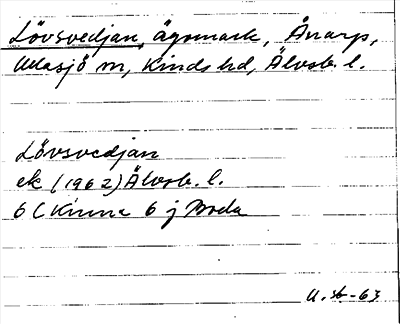 Lövsvedjan, ägomark, Ånarp,
Ullasjö sn, Kinds hd, Älvsb. l.
Lövsvedjan
ek (1962) Älvsb. l.
6 C Kinna 6 j
U. st -63